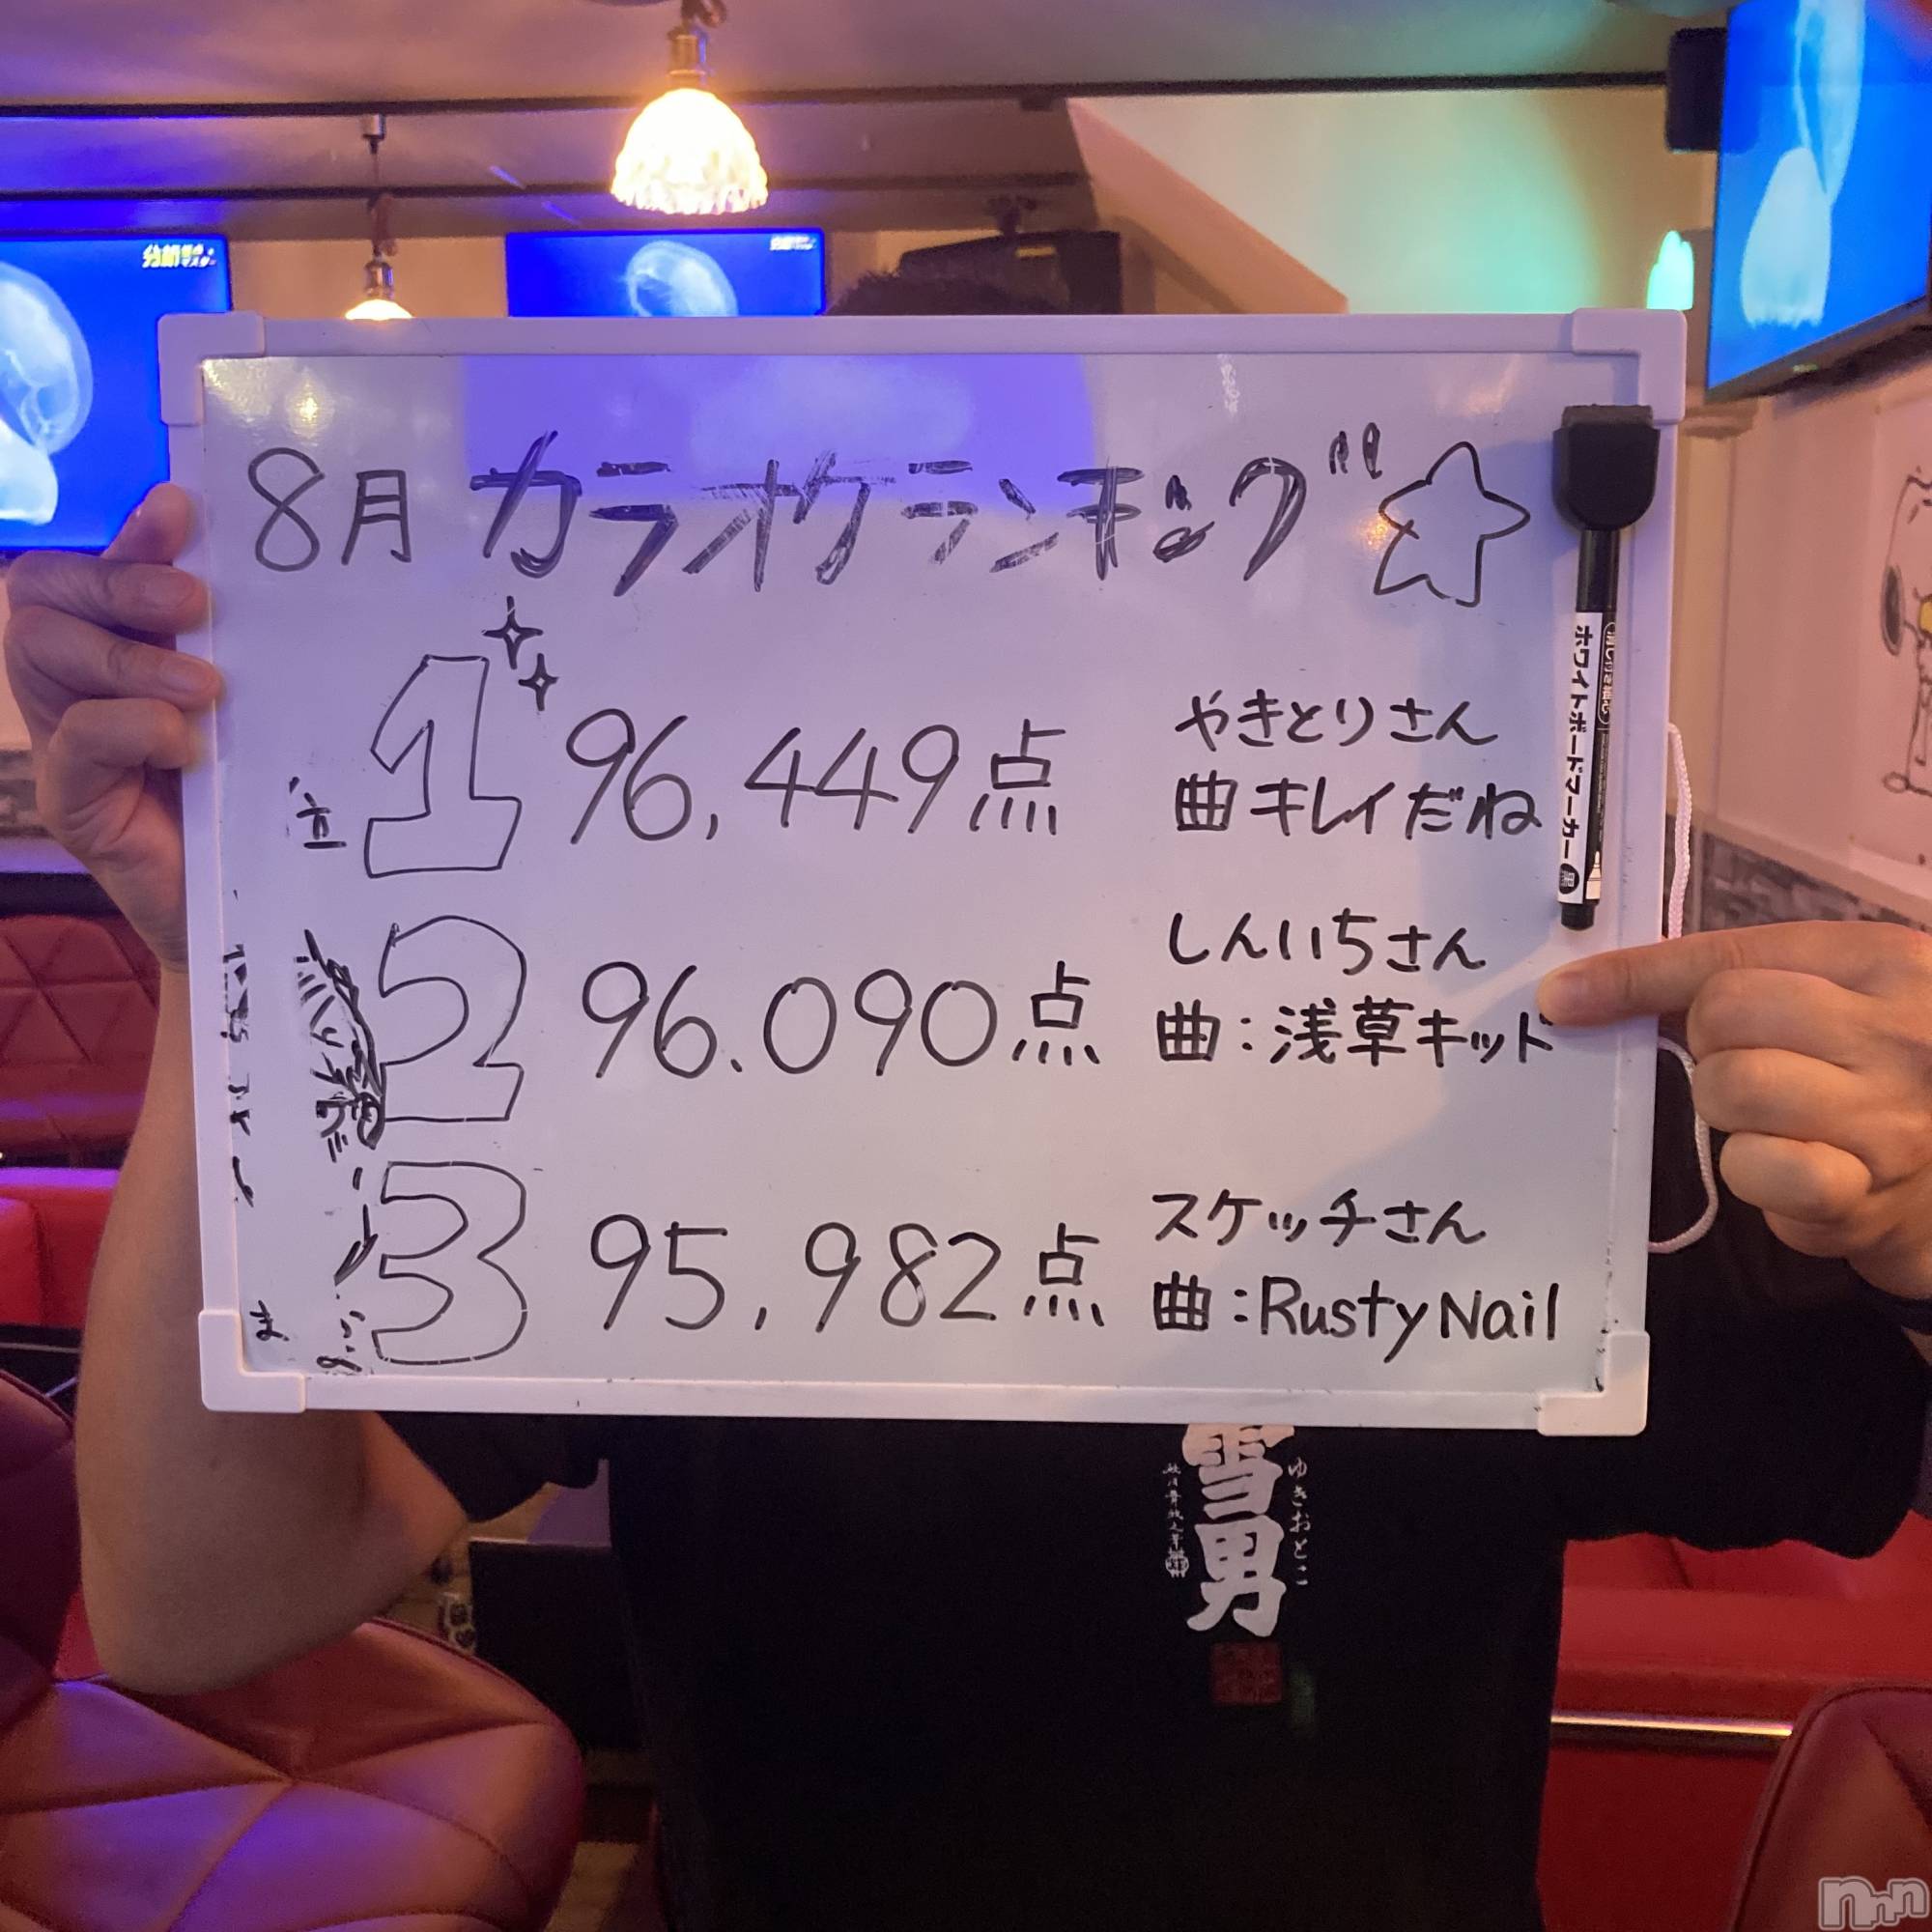 8月 カラオケランキング
1 96,449点
やきとりさん
曲 キレイだね
2 96.090点
しんいちさん
曲:浅草キッド
3 95,982点
スケッチさん
曲:Rusty Nail
ホワイトボードマーカー
雪男
ゆきおとこ